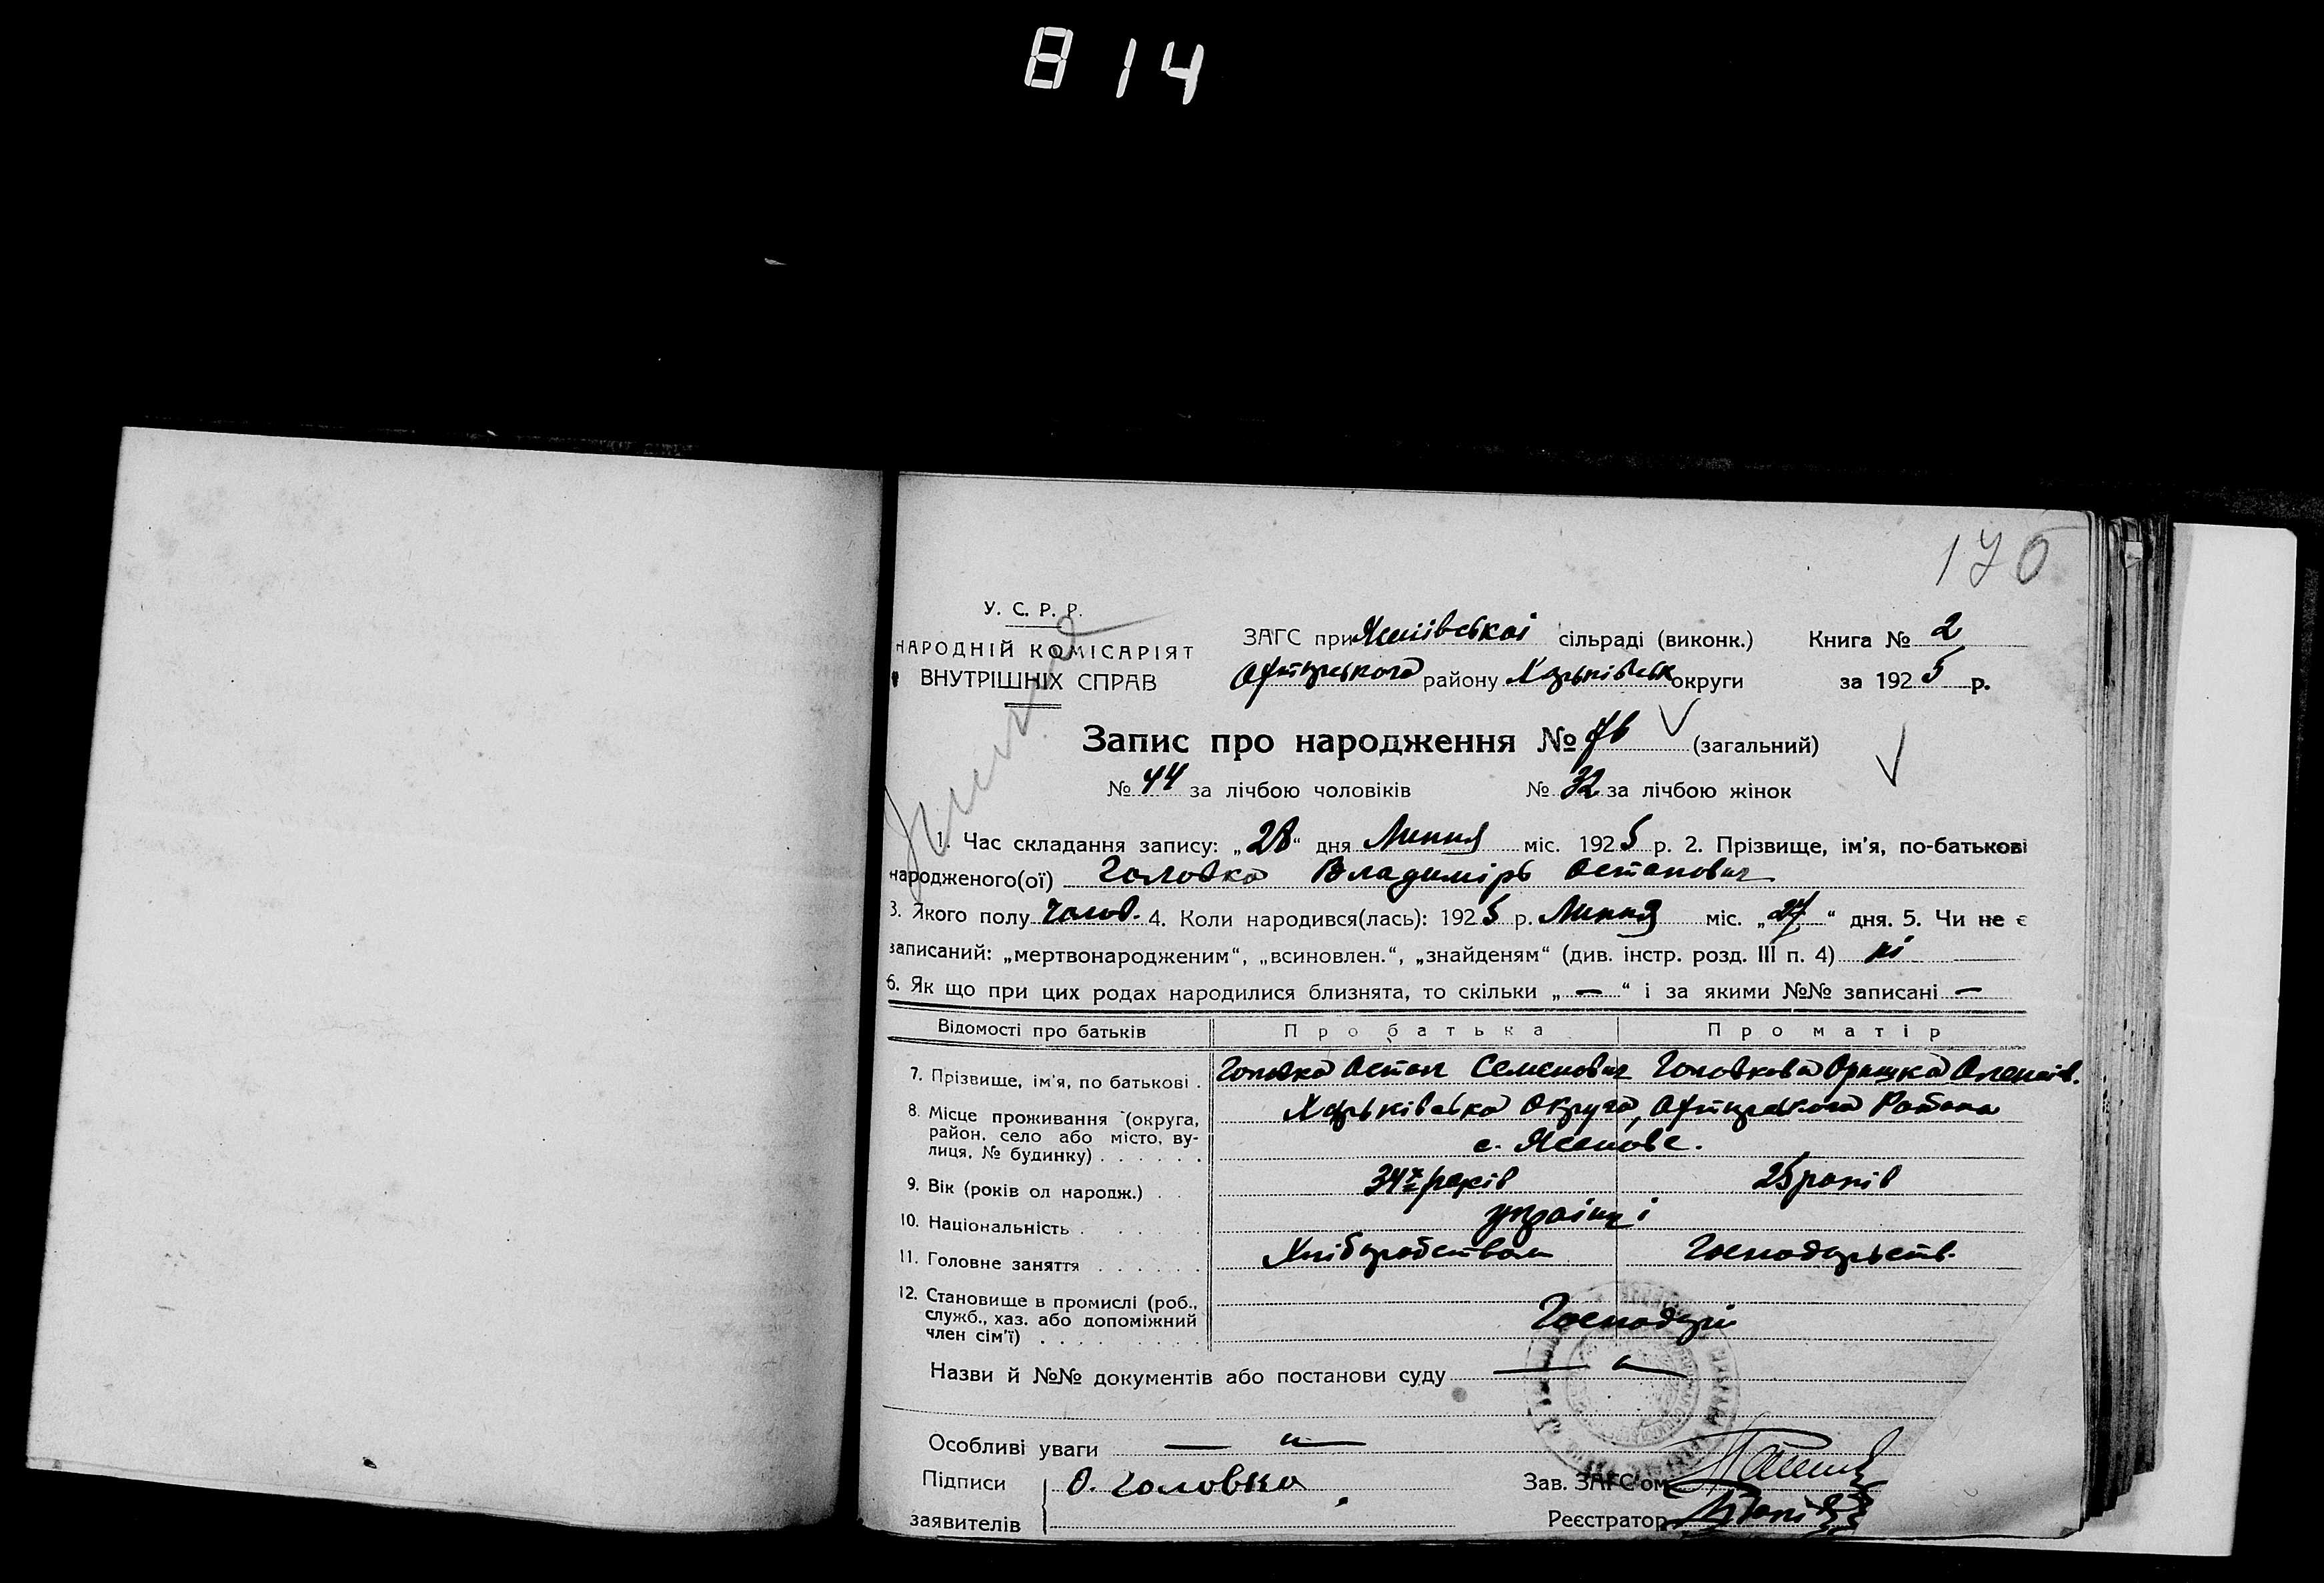 814
176
У. С. Р. Р.
НАРОДНІЙ КОМІСАРІЯТ
ВНУТРІШНІХ СПРАВ
ЗАГС при сільраді (виконк.) Книга № 2
району округи за 1925 р.
Запис про народження № 76 (загальний)
№ 44 за лічбою чоловіків № 32 за лічбою жінок
1. Час складання запису: „28“ дня Липня міс. 1925 р. 2. Прізвище, ім'я, по-батькові
народженого(ої) Головко Владимірь Остапович
3. Якого полу Чолов. 4. Коли народився(лась): 1925 р. Липня міс. „27“ дня. 5. Чи не є
записаний: „мертвонародженим“, „всиновлен.“, „знайденям“ (див. інстр. розд. III п. 4) ні
6. Як що при цих родах народилися близнята, то скільки „ — “ і за якими №№ записані —
Відомості про батьків Про батька Про матір
7. Прізвище, ім'я, по батькові . Головко Остап Семенович Головкова Оришка
8. Місце проживання (округа, Харьківська Округа, Охтирського Района
район, село або місто, ву-
лиця, № будинку) . . . . . . с. Ясенове.
9. Вік (років од народж.) . . 34х років 25 років
10. Національність . . . . . . українці
11. Головне заняття . . . . . . Хліборобством Господарств.
12. Становище в промислі (роб.,
служб., хаз. або допоміжний Господарі
член сім'ї) . . . . . . . .
Назви й №№ документів або постанови суду — " —
Особливі уваги — " —
Підписи О. Головко Зав. ЗАГС'ом
заявителів Реєстратор